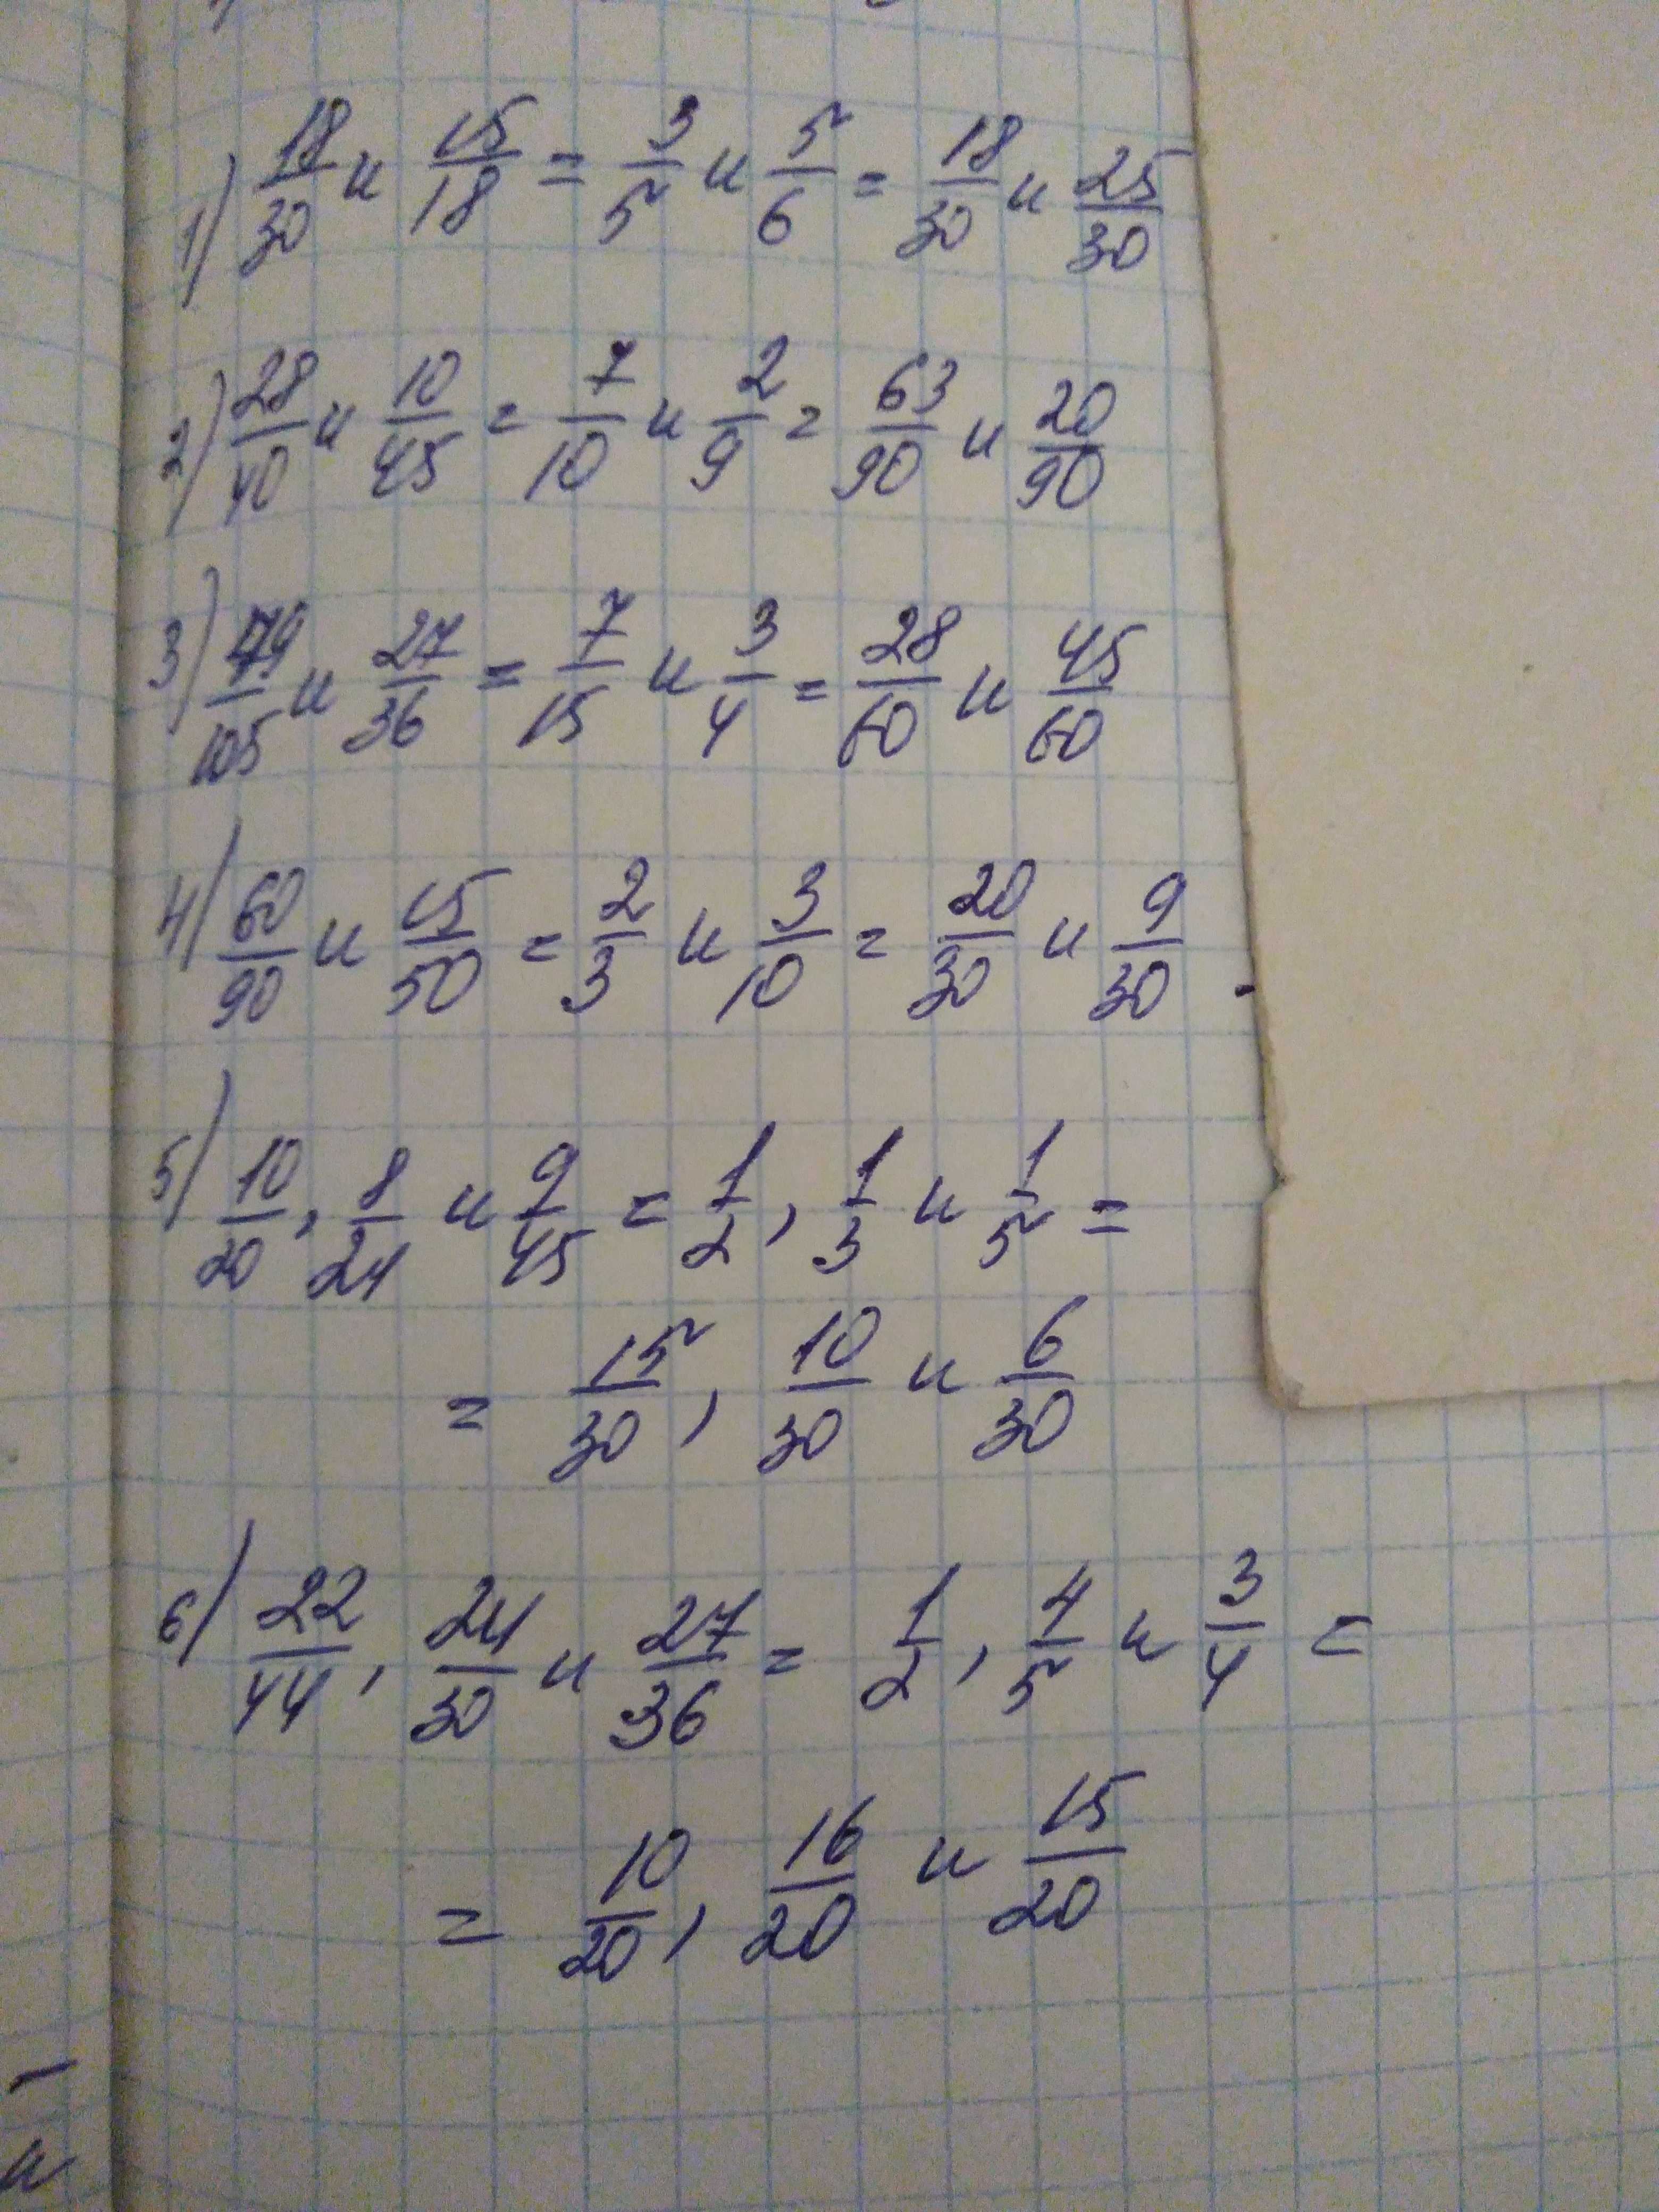 1) 18/30 и 15/18 = 3/5 и 5/6 = 18/30 и 25/30
2) 28/40 и 10/45 = 7/10 и 2/9 = 63/90 и 20/90
3) 49/105 и 27/36 = 7/15 и 3/4 = 28/60 и 45/60
4) 60/90 и 15/50 = 2/3 и 3/10 = 20/30 и 9/30
5) 10/20, 8/24 и 9/45 = 1/2, 1/3 и 1/5 =
= 15/30, 10/30 и 6/30
6) 22/44, 24/30 и 27/36 = 1/2, 4/5 и 3/4 =
= 10/20, 16/20 и 15/20
и